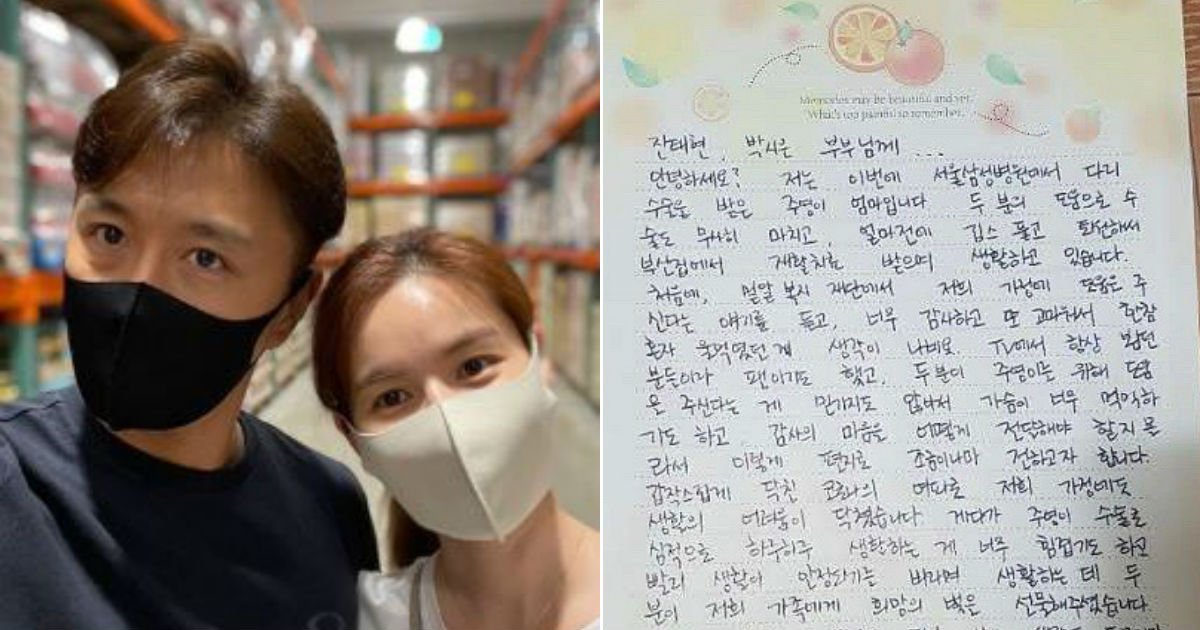 Memories may be beautiful and yet,
What's too painful to remember.
잔태현, 박시은 부부님께 ...
안녕하세요? 저는 이번에 서울삼성병원에서 다리
수술을 받은 주영이 엄마입니다 두 분의 도움으로 수
술도 무사히 마치고, 얼마전에 깁스 풀고 퇴원해서
부산집에서 재활치료 받으며 생활하고 있습니다.
처음에, 밀알 복지 재단에서 저희 가정에 도움은 주
신다는 얘기를 듣고, 너무 감사하고 또 고마워서 한참
혼자 울먹였던 게 생각이 나네요. TV에서 항상 봤던
분들이라 팬이기도 했고, 두분이 주영이를 위해 도움
은 주신다는 게 믿기지도 않아서 가슴이 너무 먹먹하
기도 하고, 감사의 마음을 어떻게 전달해야 할지 몰
라서 이렇게 편지로 조금이나마 전하고자 합니다.
갑작스럽게 닥친 코로나의 여파로 저희 가정에도
생활의 어려움이 닥쳤습니다. 게다가 주영이 수술로
심적으로 하루하루 생활하는 게 너무 힘겹기도 하고
빨리 생활이 안정되기를 바라며 생활하는 데 두
분이 저희 가족에게 희망의 빛은 선물해주셨습니다.